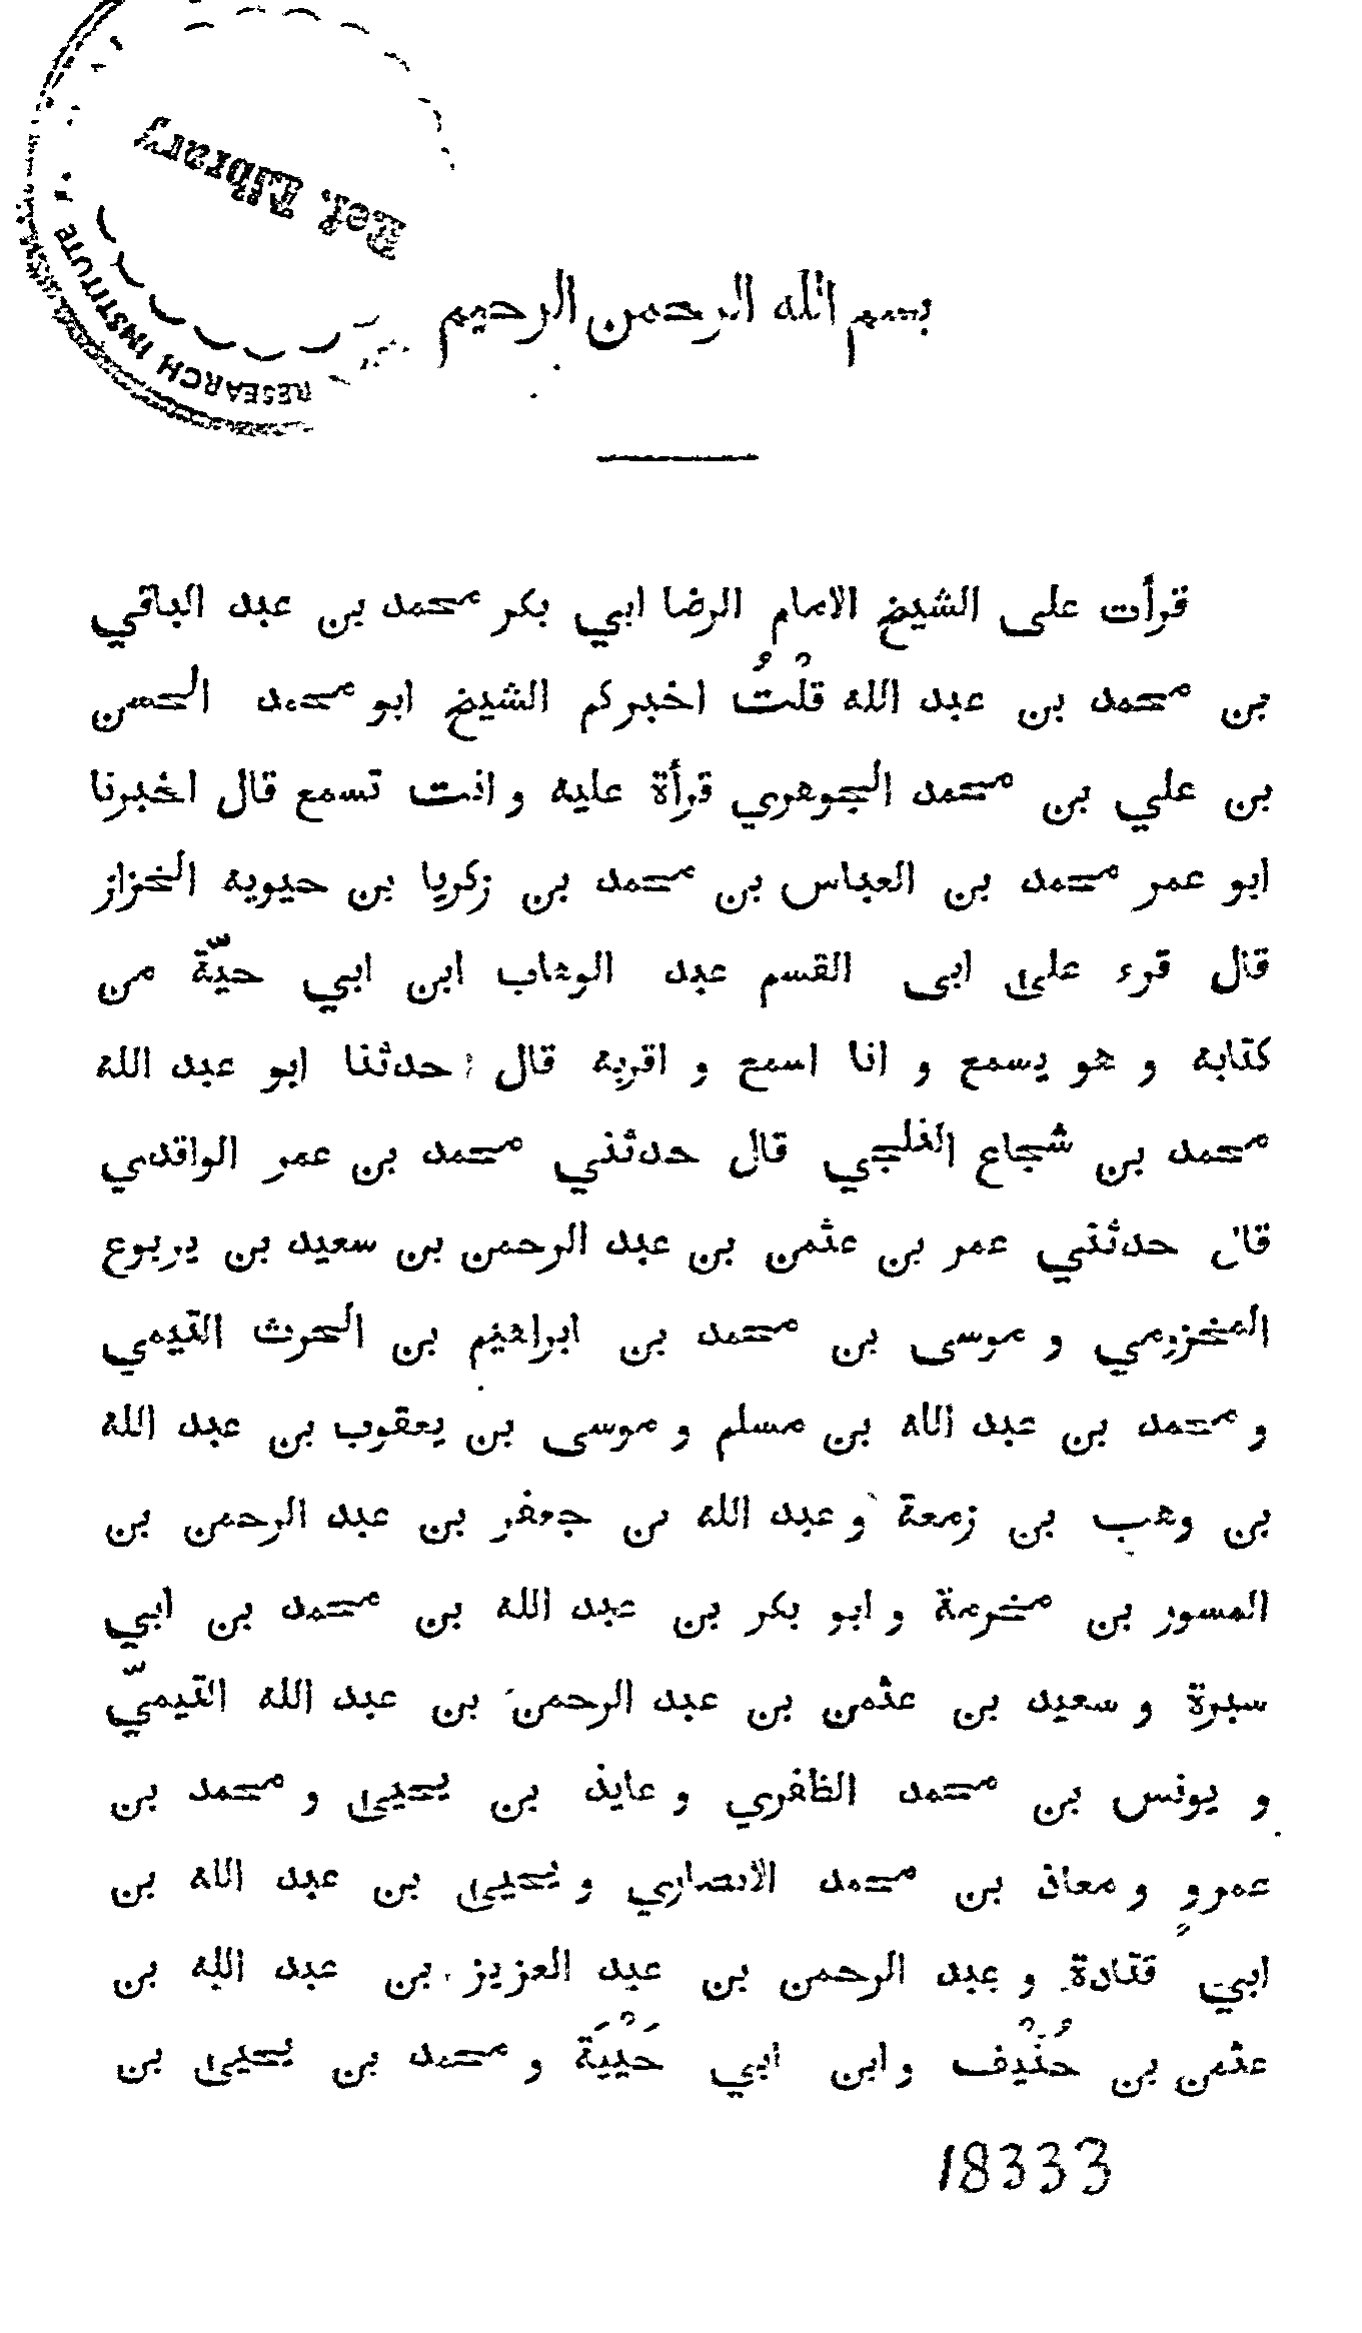 Ref. Library
RESEARCH INSTITUTE
بسم الله الرحمن الرحيم
قرأت على الشيخ الامام الرضا ابي بكر محمد بن عبد الباقي
بن محمد بن عبد الله قلْتُ اخبركم الشيخ ابو محمد الحسن
بن علي بن محمد الجوهري قرأة عليه و انت تسمع قال اخبرنا
ابو عمر محمد بن العباس بن محمد بن زكريا بن حيوية الخزاز
قال قرء على ابى القسم عبد الوهاب ابن ابي حيّة من
كتابه و هو يسمع و انا اسمع و اقربه قال حدثنا ابو عبد الله
محمد بن شجاع الثلجي قال حدثني محمد بن عمر الواقدي
قال حدثني عمر بن عثمن بن عبد الرحمن بن سعيد بن يربوع
المخزومي و موسى بن محمد بن ابراهيم بن الحرث التيمي
و محمد بن عبد الله بن مسلم و موسى بن يعقوب بن عبد الله
بن وهب بن زمعة و عبد الله بن جعفر بن عبد الرحمن بن
المسور بن مخرمة و ابو بكر بن عبد الله بن محمد بن ابي
سبرة و سعيد بن عثمن بن عبد الرحمن بن عبد الله التيميّ
و يونس بن محمد الظفري و عايذ بن يحيى و محمد بن
عمروٍ و معاذ بن محمد الانصاري و يحيى بن عبد الله بن
ابي قتادة و عبد الرحمن بن عبد العزيز بن عبد الله بن
عثمن بن حُنْيف و ابن ابي حَيْيَة و محمد بن يحيى بن
18333